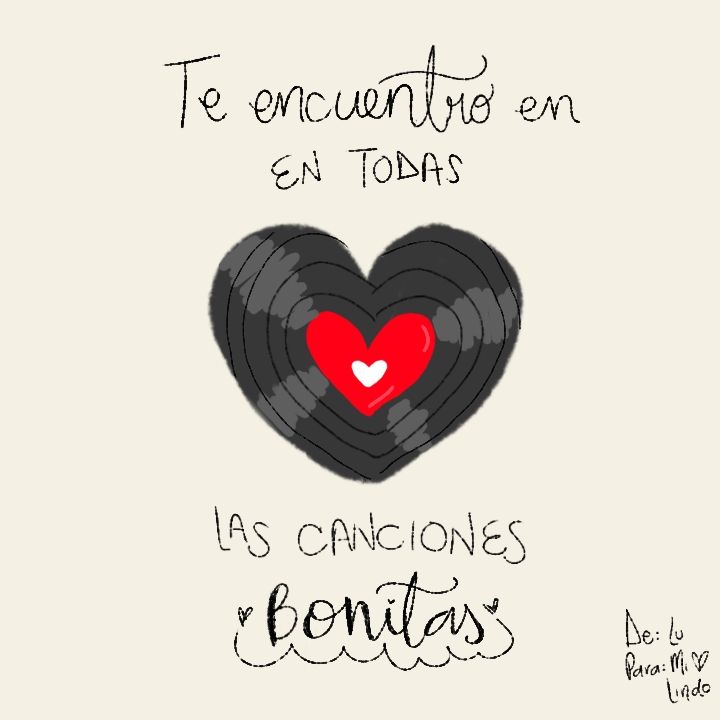 Te encuentro en
EN TODAS
LAS CANCIONES
Bonitas
De: Lu
Para: Mi
Lindo